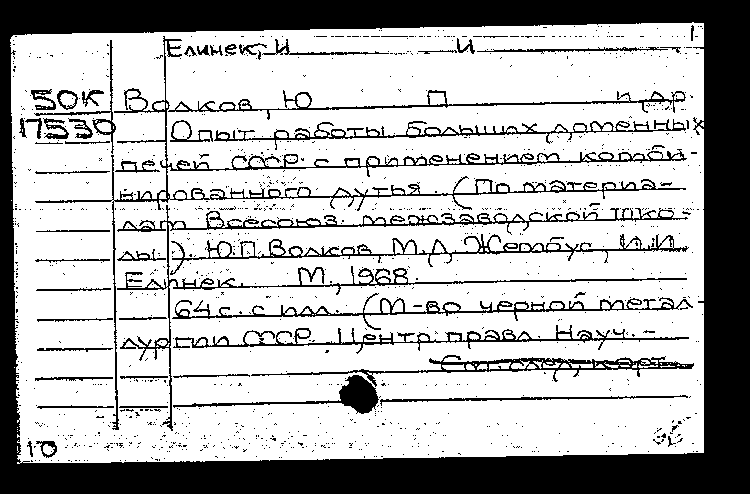 1
Елинек, И И
50К Волков, Ю П и др.
17530 Опыт работы больших доменных
печей СССР с применением комби-
нированного дутья. (По материа-
лам Всесоюз. межзаводской шко-
лы). Ю.П. Волков, М.Д. Жембус, И.И.
Елинек. М., 1968.
64 с. с илл. (М-во черной метал-
лургии СССР. Центр. правл. Науч.-
См. след. карт.
10